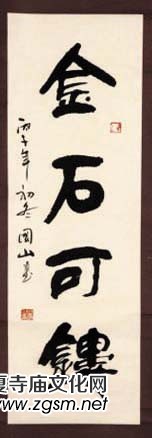 金石可鏤
丙子年初冬国山书
夏寺庙文化网
www.zgsm.net